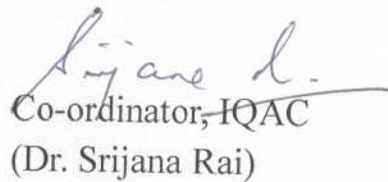 Srijane R.
Co-ordinator, IQAC
(Dr. Srijana Rai)